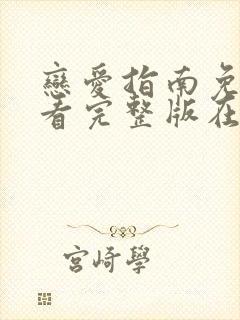 戀愛指南免
看完整版在
宮崎學